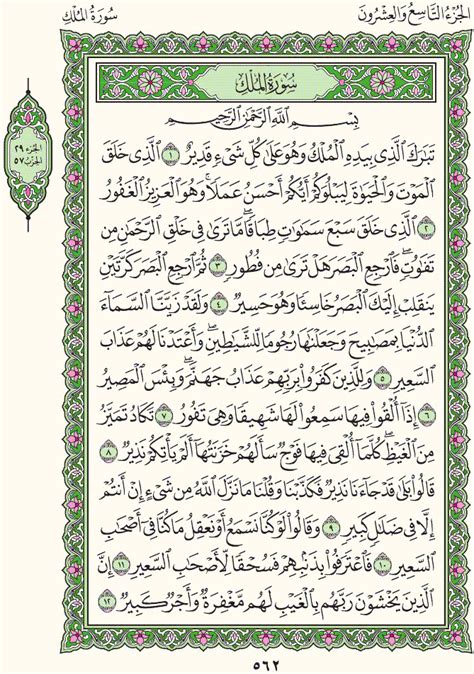 الجزء التاسع والعشرون
سورة الملك
سورة الملك
الجزء ٢٩
الحزب ٥٧
بسم الله الرحمن الرحيم
تَبَٰرَكَ ٱلَّذِي بِيَدِهِ ٱلۡمُلۡكُ وَهُوَ عَلَىٰ كُلِّ شَيۡءٖ قَدِيرٌ ١ ٱلَّذِي خَلَقَ
ٱلۡمَوۡتَ وَٱلۡحَيَوٰةَ لِيَبۡلُوَكُمۡ أَيُّكُمۡ أَحۡسَنُ عَمَلٗاۚ وَهُوَ ٱلۡعَزِيزُ ٱلۡغَفُورُ
٢ ٱلَّذِي خَلَقَ سَبۡعَ سَمَٰوَٰتٖ طِبَاقٗاۖ مَّا تَرَىٰ فِي خَلۡقِ ٱلرَّحۡمَٰنِ مِن
تَفَٰوُتٖۖ فَٱرۡجِعِ ٱلۡبَصَرَ هَلۡ تَرَىٰ مِن فُطُورٖ ٣ ثُمَّ ٱرۡجِعِ ٱلۡبَصَرَ كَرَّتَيۡنِ
يَنقَلِبۡ إِلَيۡكَ ٱلۡبَصَرُ خَاسِئٗا وَهُوَ حَسِيرٞ ٤ وَلَقَدۡ زَيَّنَّا ٱلسَّمَآءَ
ٱلدُّنۡيَا بِمَصَٰبِيحَ وَجَعَلۡنَٰهَا رُجُومٗا لِّلشَّيَٰطِينِۖ وَأَعۡتَدۡنَا لَهُمۡ عَذَابَ
ٱلسَّعِيرِ ٥ وَلِلَّذِينَ كَفَرُواْ بِرَبِّهِمۡ عَذَابُ جَهَنَّمَۖ وَبِئۡسَ ٱلۡمَصِيرُ
٦ إِذَآ أُلۡقُواْ فِيهَا سَمِعُواْ لَهَا شَهِيقٗا وَهِيَ تَفُورُ ٧ تَكَادُ تَمَيَّزُ
مِنَ ٱلۡغَيۡظِۖ كُلَّمَآ أُلۡقِيَ فِيهَا فَوۡجٞ سَأَلَهُمۡ خَزَنَتُهَآ أَلَمۡ يَأۡتِكُمۡ نَذِيرٞ ٨
قَالُواْ بَلَىٰ قَدۡ جَآءَنَا نَذِيرٞ فَكَذَّبۡنَا وَقُلۡنَا مَا نَزَّلَ ٱللَّهُ مِن شَيۡءٍ إِنۡ أَنتُمۡ
إِلَّا فِي ضَلَٰلٖ كَبِيرٖ ٩ وَقَالُواْ لَوۡ كُنَّا نَسۡمَعُ أَوۡ نَعۡقِلُ مَا كُنَّا فِيٓ أَصۡحَٰبِ
ٱلسَّعِيرِ ١٠ فَٱعۡتَرَفُواْ بِذَنۢبِهِمۡ فَسُحۡقٗا لِّأَصۡحَٰبِ ٱلسَّعِيرِ ١١ إِنَّ
ٱلَّذِينَ يَخۡشَوۡنَ رَبَّهُم بِٱلۡغَيۡبِ لَهُم مَّغۡفِرَةٞ وَأَجۡرٞ كَبِيرٞ ١٢
٥٦٢